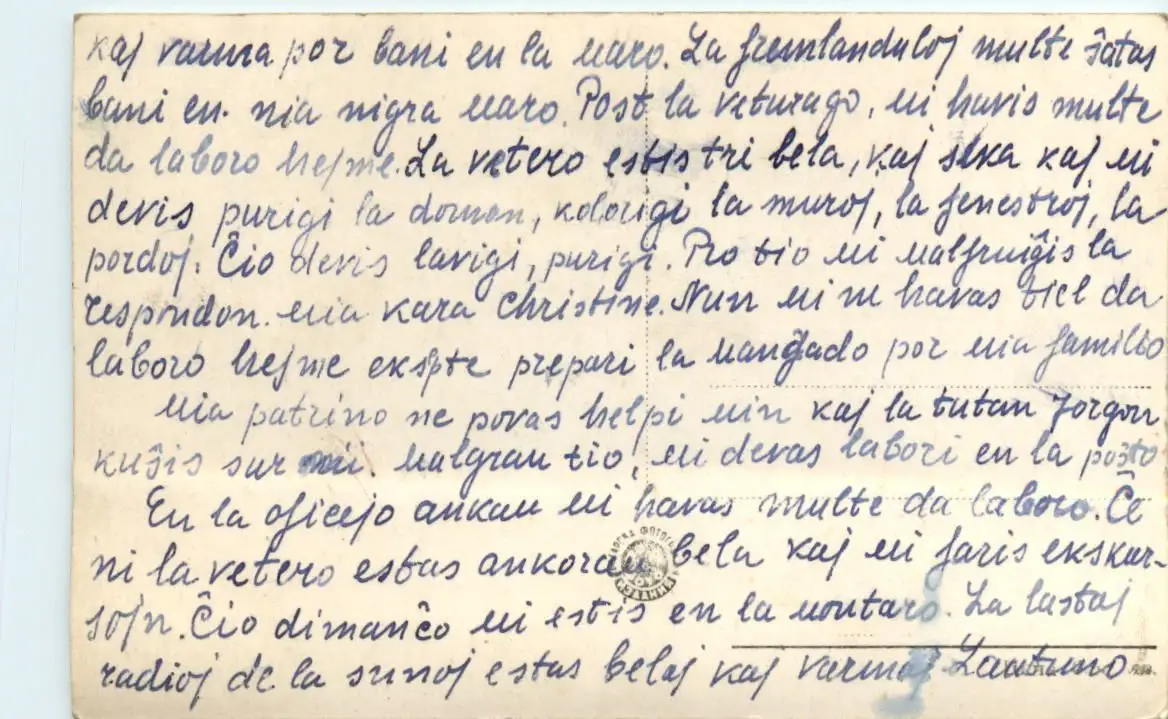 kaj varma por bani en la maro. La fremlanduloj multe ŝatas
bani en nia nigra maro. Post la veturago, mi havis multe
da laboro hejme. La vetero estis tri bela, kaj seka kaj mi
devis purigi la domon, kolorigi la muroj, la fenestroj, la
pordoj. Ĉio devis lavigi, purigi. Pro tio mi malfruiĝis la
respondon mia kara Christine. Nun mi ne havas tiel da
laboro hejme ekspte prepari la manĝado por mia familio
Mia patrino ne povas helpi min kaj la tutan zorgon
kuŝis sur mi. Malgrau tio, mi devas labori en la poŝto
En la oficejo ankau mi havas multe da laboro. Ĉe
ni la vetero estas ankorau bela kaj mi faris ekskur-
sojn. Ĉio dimanĉo mi estis en la montaro. La lastaj
radioj de la sunoj estas belaj kaj varmaj Lautuno